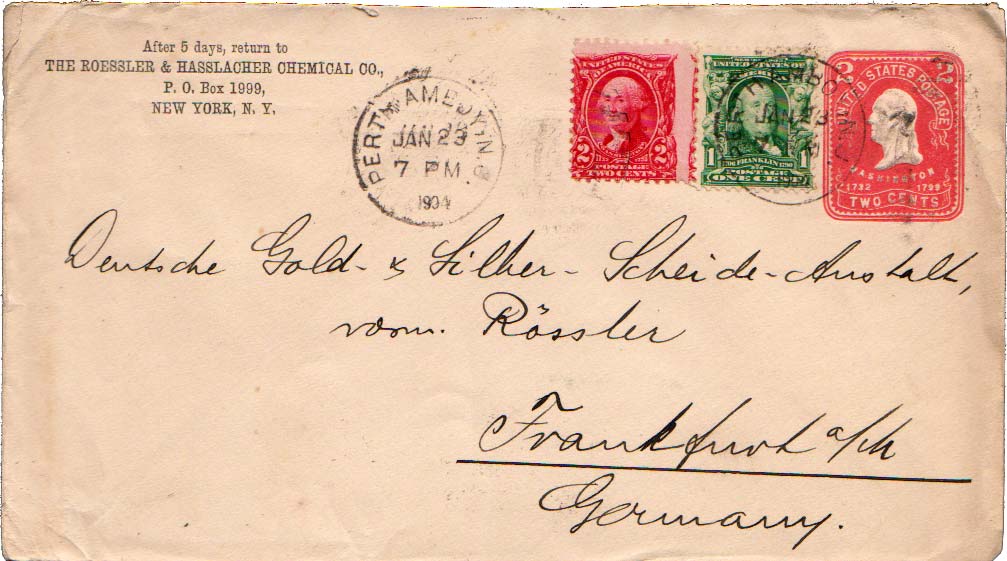 After 5 days, return to
THE ROESSLER & HASSLACHER CHEMICAL CO.,
P. O. Box 1999,
NEW YORK, N. Y.
PERTH AMBOY, N.J.
JAN 23
7 PM
1904
UNITED STATES
OF AMERICA
2 2
POSTAGE
TWO CENTS
UNITED STATES OF
AMERICA
1 1
1706 FRANKLIN 1790
POSTAGE
ONE CENT
JAN 23
2 2
UNITED STATES POSTAGE
WASHINGTON
1732 1799
TWO CENTS
Deutsche Gold- & Silber- Scheide-Anstalt,
vorm. Rössler
Frankfurt a/M
Germany.